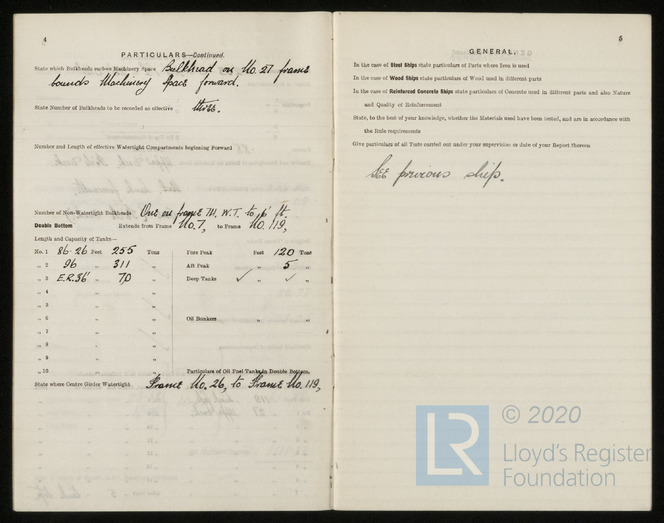 4
PARTICULARS—Continued.
State which Bulkheads enclose Machinery Space Bulkhead on No. 27 frame
bounds Machinery Space forward.
State Number of Bulkheads to be recorded as effective Three.
Number and Length of effective Watertight Compartments beginning Forward
Number of Non-Watertight Bulkheads One on frame W. T. to 16 ft.
Double Bottom Extends from Frame No. 7, to Frame No. 119,
Length and Capacity of Tanks—
No. 1 86.26 Feet 255 Tons Fore Peak Feet 120 Tons
„ 2 96 „ 311 „ Aft Peak „ 5 „
„ 3 E.R. 36' „ 70 „ Deep Tanks ✓ „ ✓ „
„ 4 „ „
„ 5 „ „
„ 6 „ „ Oil Bunkers „ „
„ 7 „ „
„ 8 „ „
„ 9 „ „
„ 10 „ „ Particulars of Oil Fuel Tanks in Double Bottom,
State where Centre Girder Watertight Frame No. 26, to Frame No. 119,
5
GENERAL.
In the case of Steel Ships state particulars of Parts where Iron is used
In the case of Wood Ships state particulars of Wood used in different parts
In the case of Reinforced Concrete Ships state particulars of Concrete used in different parts and also Nature
and Quality of Reinforcement
State, to the best of your knowledge, whether the Materials used have been tested, and are in accordance with
the Rule requirements
Give particulars of all Tests carried out under your supervision or date of your Report thereon
See previous ship.
LR
© 2020
Lloyd's Register
Foundation